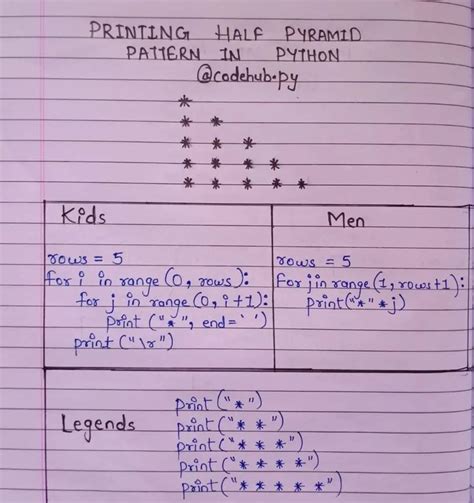 PRINTING HALF PYRAMID
PATTERN IN PYTHON
@codehub.py
*
* *
* * *
* * * *
* * * * *
Kids
rows = 5
for i in range (0, rows):
for j in range (0, i+1):
print ("*", end=' ')
print ("\r")
Men
rows = 5
for j in range (1, rows+1):
print("*" * j)
Legends
print ("*")
print ("* *")
print ("* * *")
print ("* * * *")
print ("* * * * *")